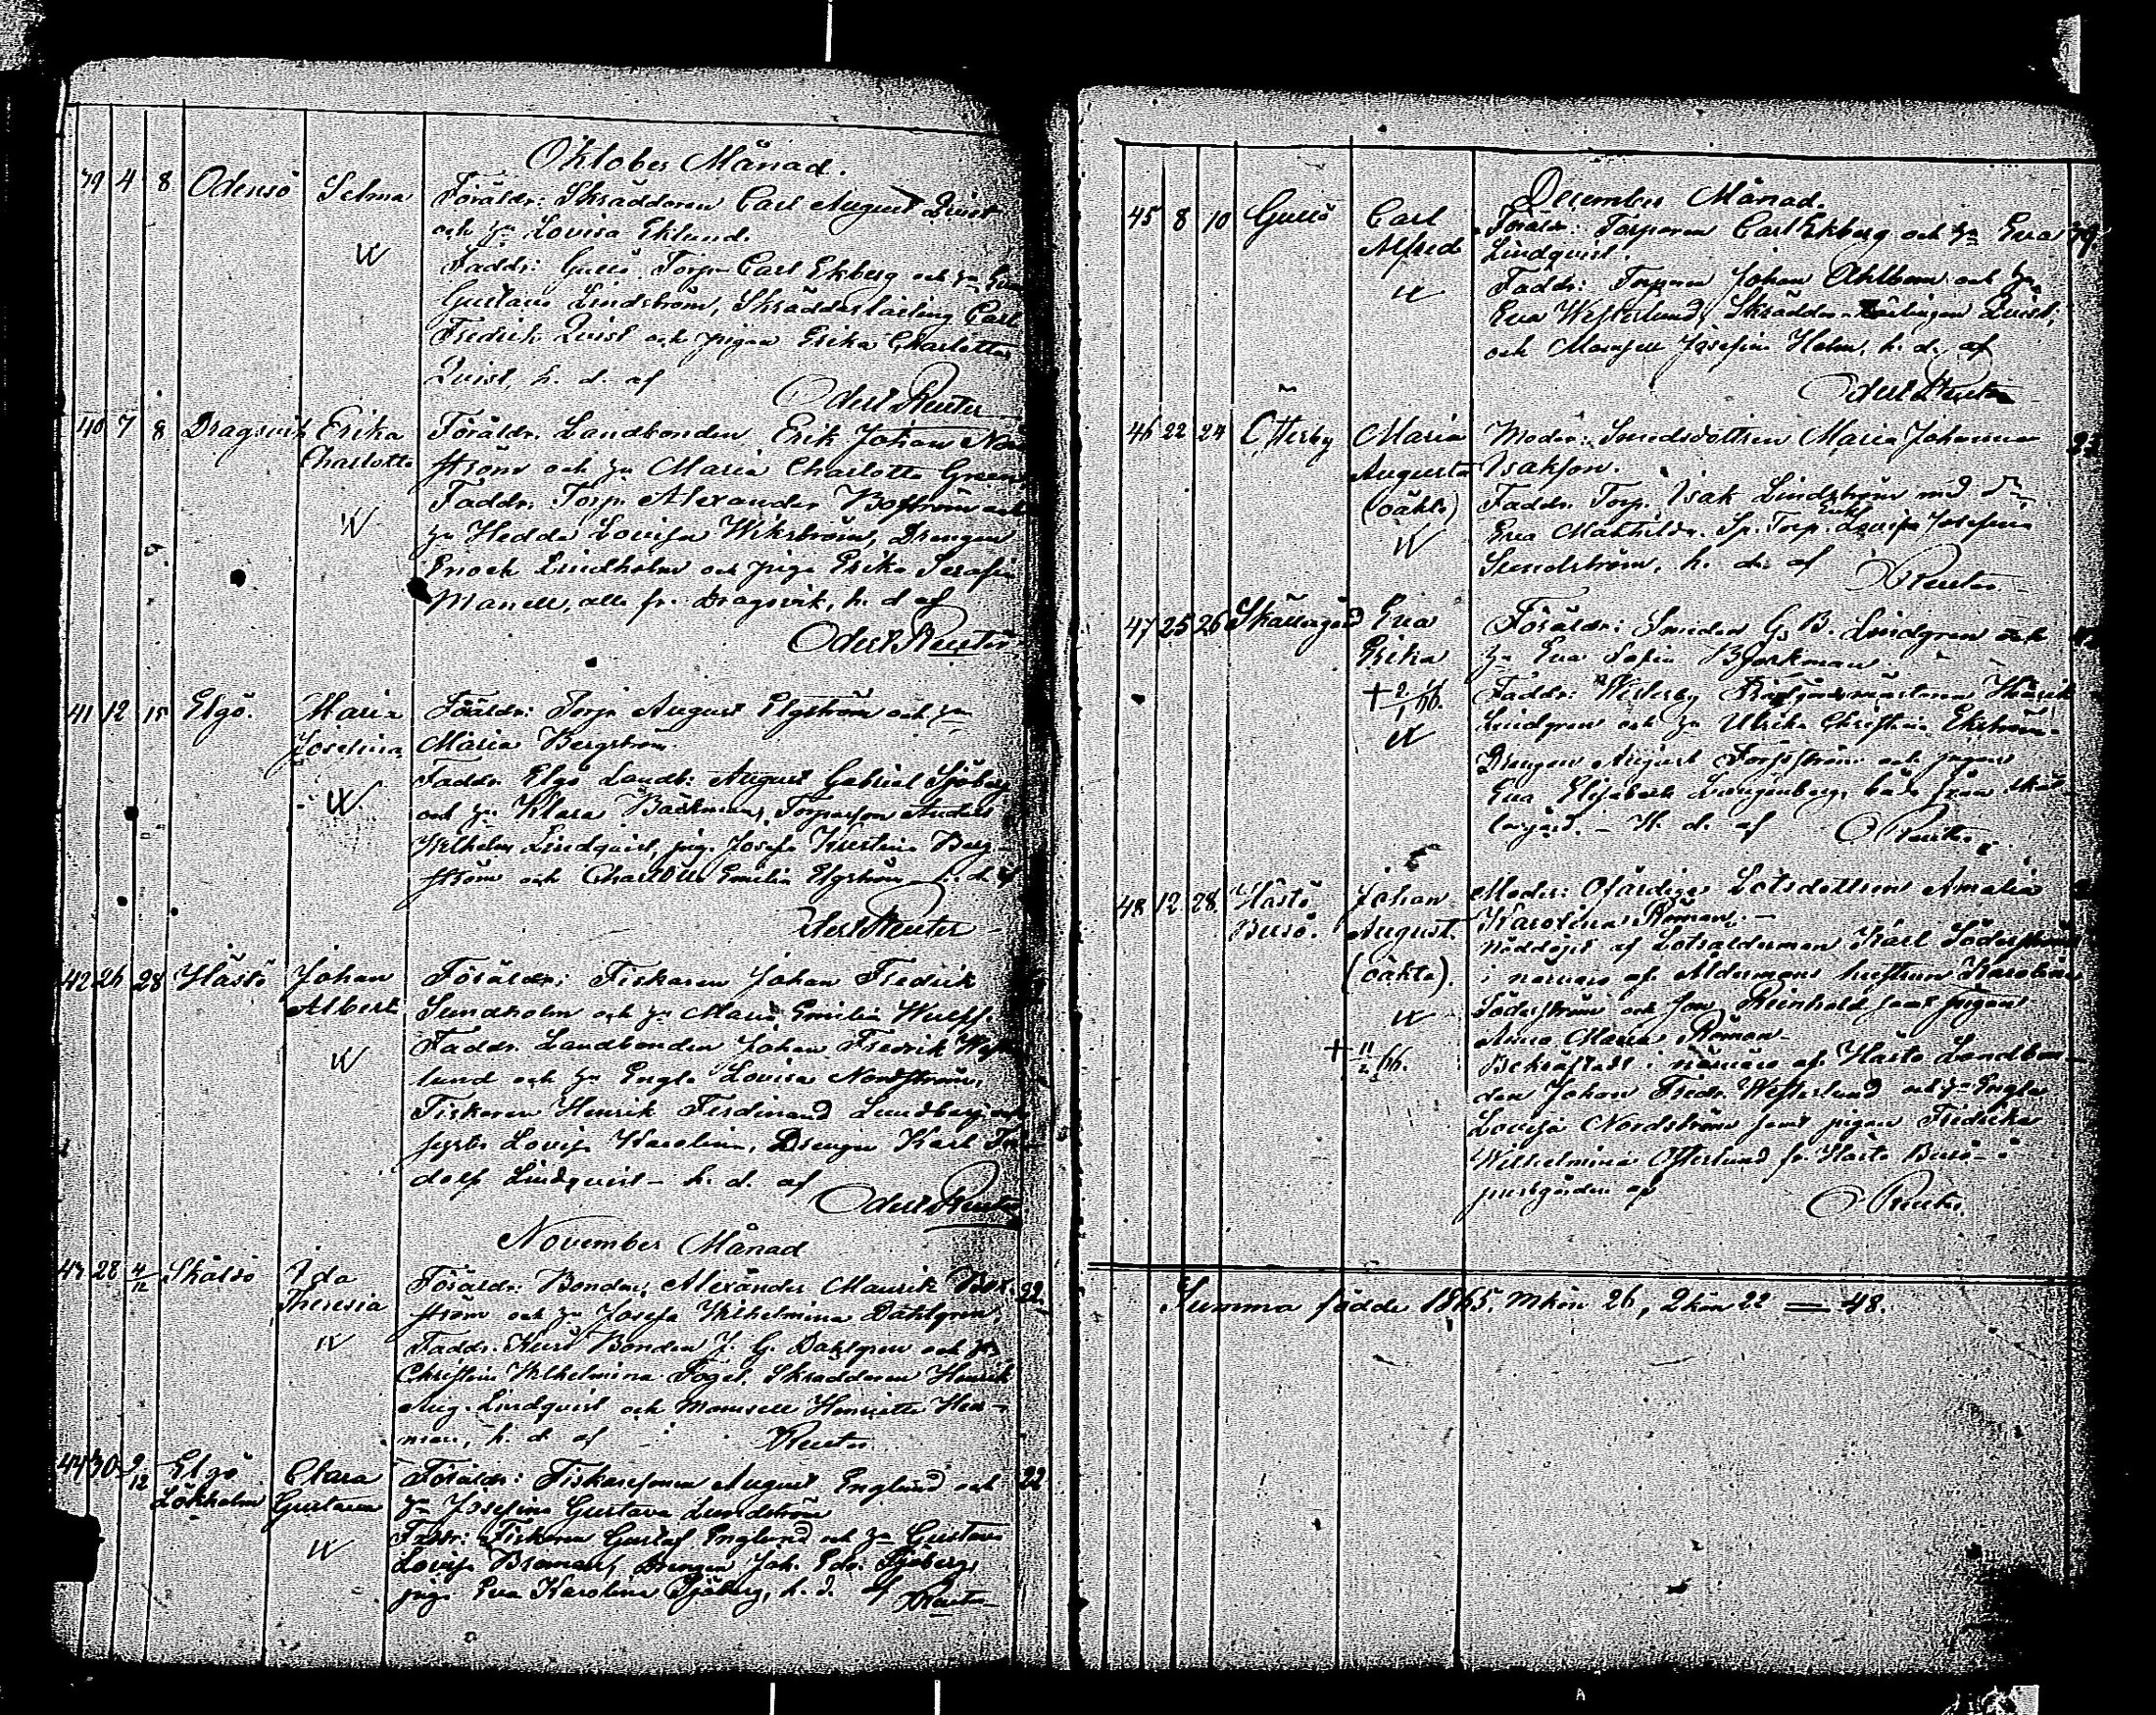 Oktober Månad.
39 4 8 Odensö Selma Föräldr: Skräddaren Carl August Quist
och h:u Lovisa Eklund.
Faddr: Gullö Torp. Carl Ekberg och h:u Eva
Gustava Lindström, Skräddarlärling Carl
Fredrik Quist och pigan Erika Charlotta
Quist, h. d. af
Odert Reuter
40 7 8 Dragsvik Erika Charlotta Föräldr. Landbonden Erik Johan
ström och h:u Maria Charlotta Green
Faddr. Torp. Alexander Boström och
h:u Hedda Lovisa Wikström, Drengen
Enoch Lindholm och piga Erika Serafia
Manell, alla fr. Dragsvik, h. d. af
Odert Reuter
41 12 15 Elgö. Maria Josefina Föräldr: Torp. August Elgström och h:u
Maria Bergström.
Faddr. Elgö Landb: August Gabriel Sjöberg
och h:u Klara Backman, Torparson Anders
Wilhelm Lindquist, pig. Josefa Kristina Berg-
ström och Charlotta Emilia Elgström h. d. af
Odert Reuter
42 26 28 Hästö Johan Albert Föräldr: Fiskaren Johan Fredrik
Sundholm och h:u Maria Emilia
Faddr. Landbonden Johan Fredrik Wester
lund och h:u Engla Lovisa Nordström,
Fiskaren Henrik Ferdinand Lundberg och
syster Lovisa Karolina, Drengen Karl
dolf Lindquist - h. d. af
Odert Reuter
November Månad
43 28 4/12 Skåldö Ida Theresia Föräldr: Bonden Alexander Maurik 22
ström och h:u Josefa Wilhelmina Dahlgren,
Faddr. Bonden J. G. Dahlgren och h:u
Christina Wilhelmina Fogel, Skräddaren Henrik
Aug. Lindquist och Mamsell Henrietta
man, h. d. af Reuter.
44 30 9/12 Elgö Lökholm Clara Gustava Föräldr: Fiskaresonen August Englund och 22
h:u Josefina Gustava Lundström
Faddr: Fiskaren Gustaf Englund och h:u Gustava
Lovisa Broman, Drengen Joh. Edv. Sjöberg,
pig. Eva Karolina Sjöberg, h. d. af Reuter
December Månad.
45 8 10 Gullö Carl Alfred Föräldr: Torparen Carl Ekberg och h:u Eva
Lindquist.
Faddr: Torparen Johan Ahlbom och h:u
Eva Westerlund, Skräddare-lärlingen Quist,
och Mamsell Josefina Holm, h. d. af
Odert Reuter
46 22 24 Österby Maria Augusta (oäkta) Moder: Smedsdottren Maria Johanna
Isakson.
Faddr. Torp. Isak Lindström med
Eva Mathilda. Sp. Torp. Enkl. Lovisa Josefina
Sundström. h. d. af Reuter
47 25 26 Skällargård Eva Erika + 2/1 66. Föräldr: Smeden G. B. Lindgren och
h:u Eva Sofia Bjorkman.
Faddr: Westerby Henrik
Lindgren och h:u Ulrika Christina Ekström.
Drengen August Forsström och pigan
Eva Elisabeth Langenberg, båda från Skäl-
largård. - H. d. af O Reuter.
48 12 28. Hästö Busö. Johan August. (oäkta). + 11/2 66. Moder: Ofärdiga Lotsdottren Amalia
Karolina Roman. -
Nöddöpt af Lotsålderman Karl Söderström
i närvaro af Åldermans hustrun Karolina
Söderström och son Reinhold samt pigan
Anna Maria Roman -
Bekräftadt i närvaro af Hästö Landbon-
den Johan Fredr. Westerlund och h:u Engla
Lovisa Nordström samt pigan Fredrika
Wilhelmina Österlund fr. Hästö Busö - i
prestgården af O Reuter.
Summa födde 1865. Mkön 26, Qkön 22 = 48.